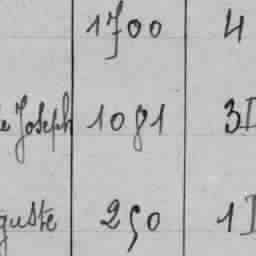 1700 4
Joseph 1081 3
guste 250 1